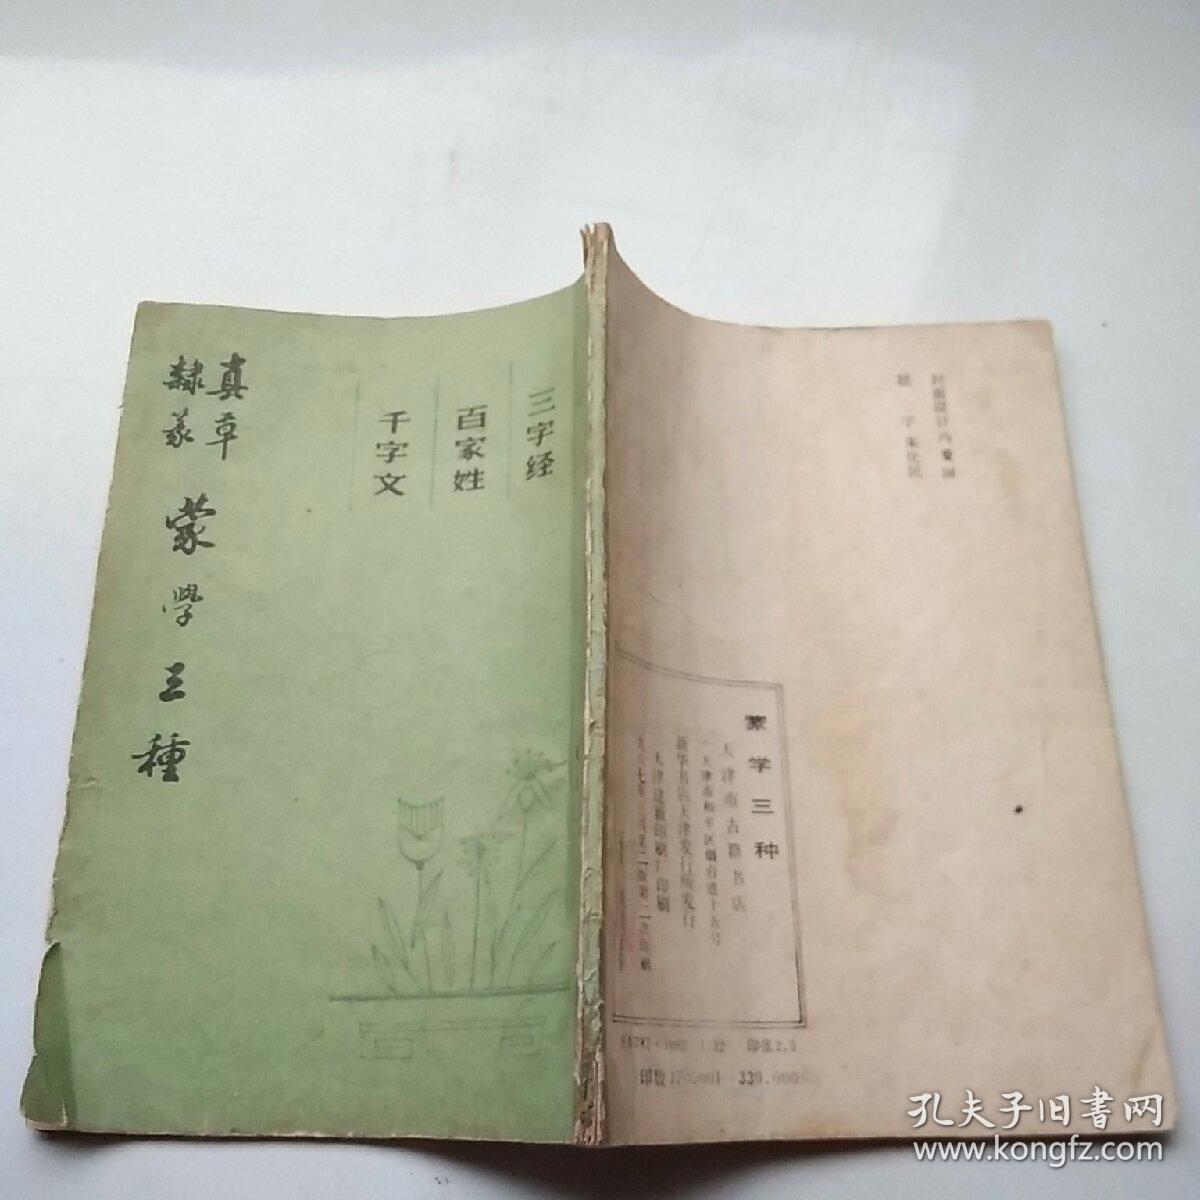 真草
隸篆
蒙學三種
三字经
百家姓
千字文
封面设计
题 字 朱化民
蒙学三种
天津市古籍书店
(天津市和平区烟台道十五号
新华书店天津发行所发行
天津建新印刷厂印刷
印张2.5
印数170.001-330.000
孔夫子旧書网
www.kongfz.com